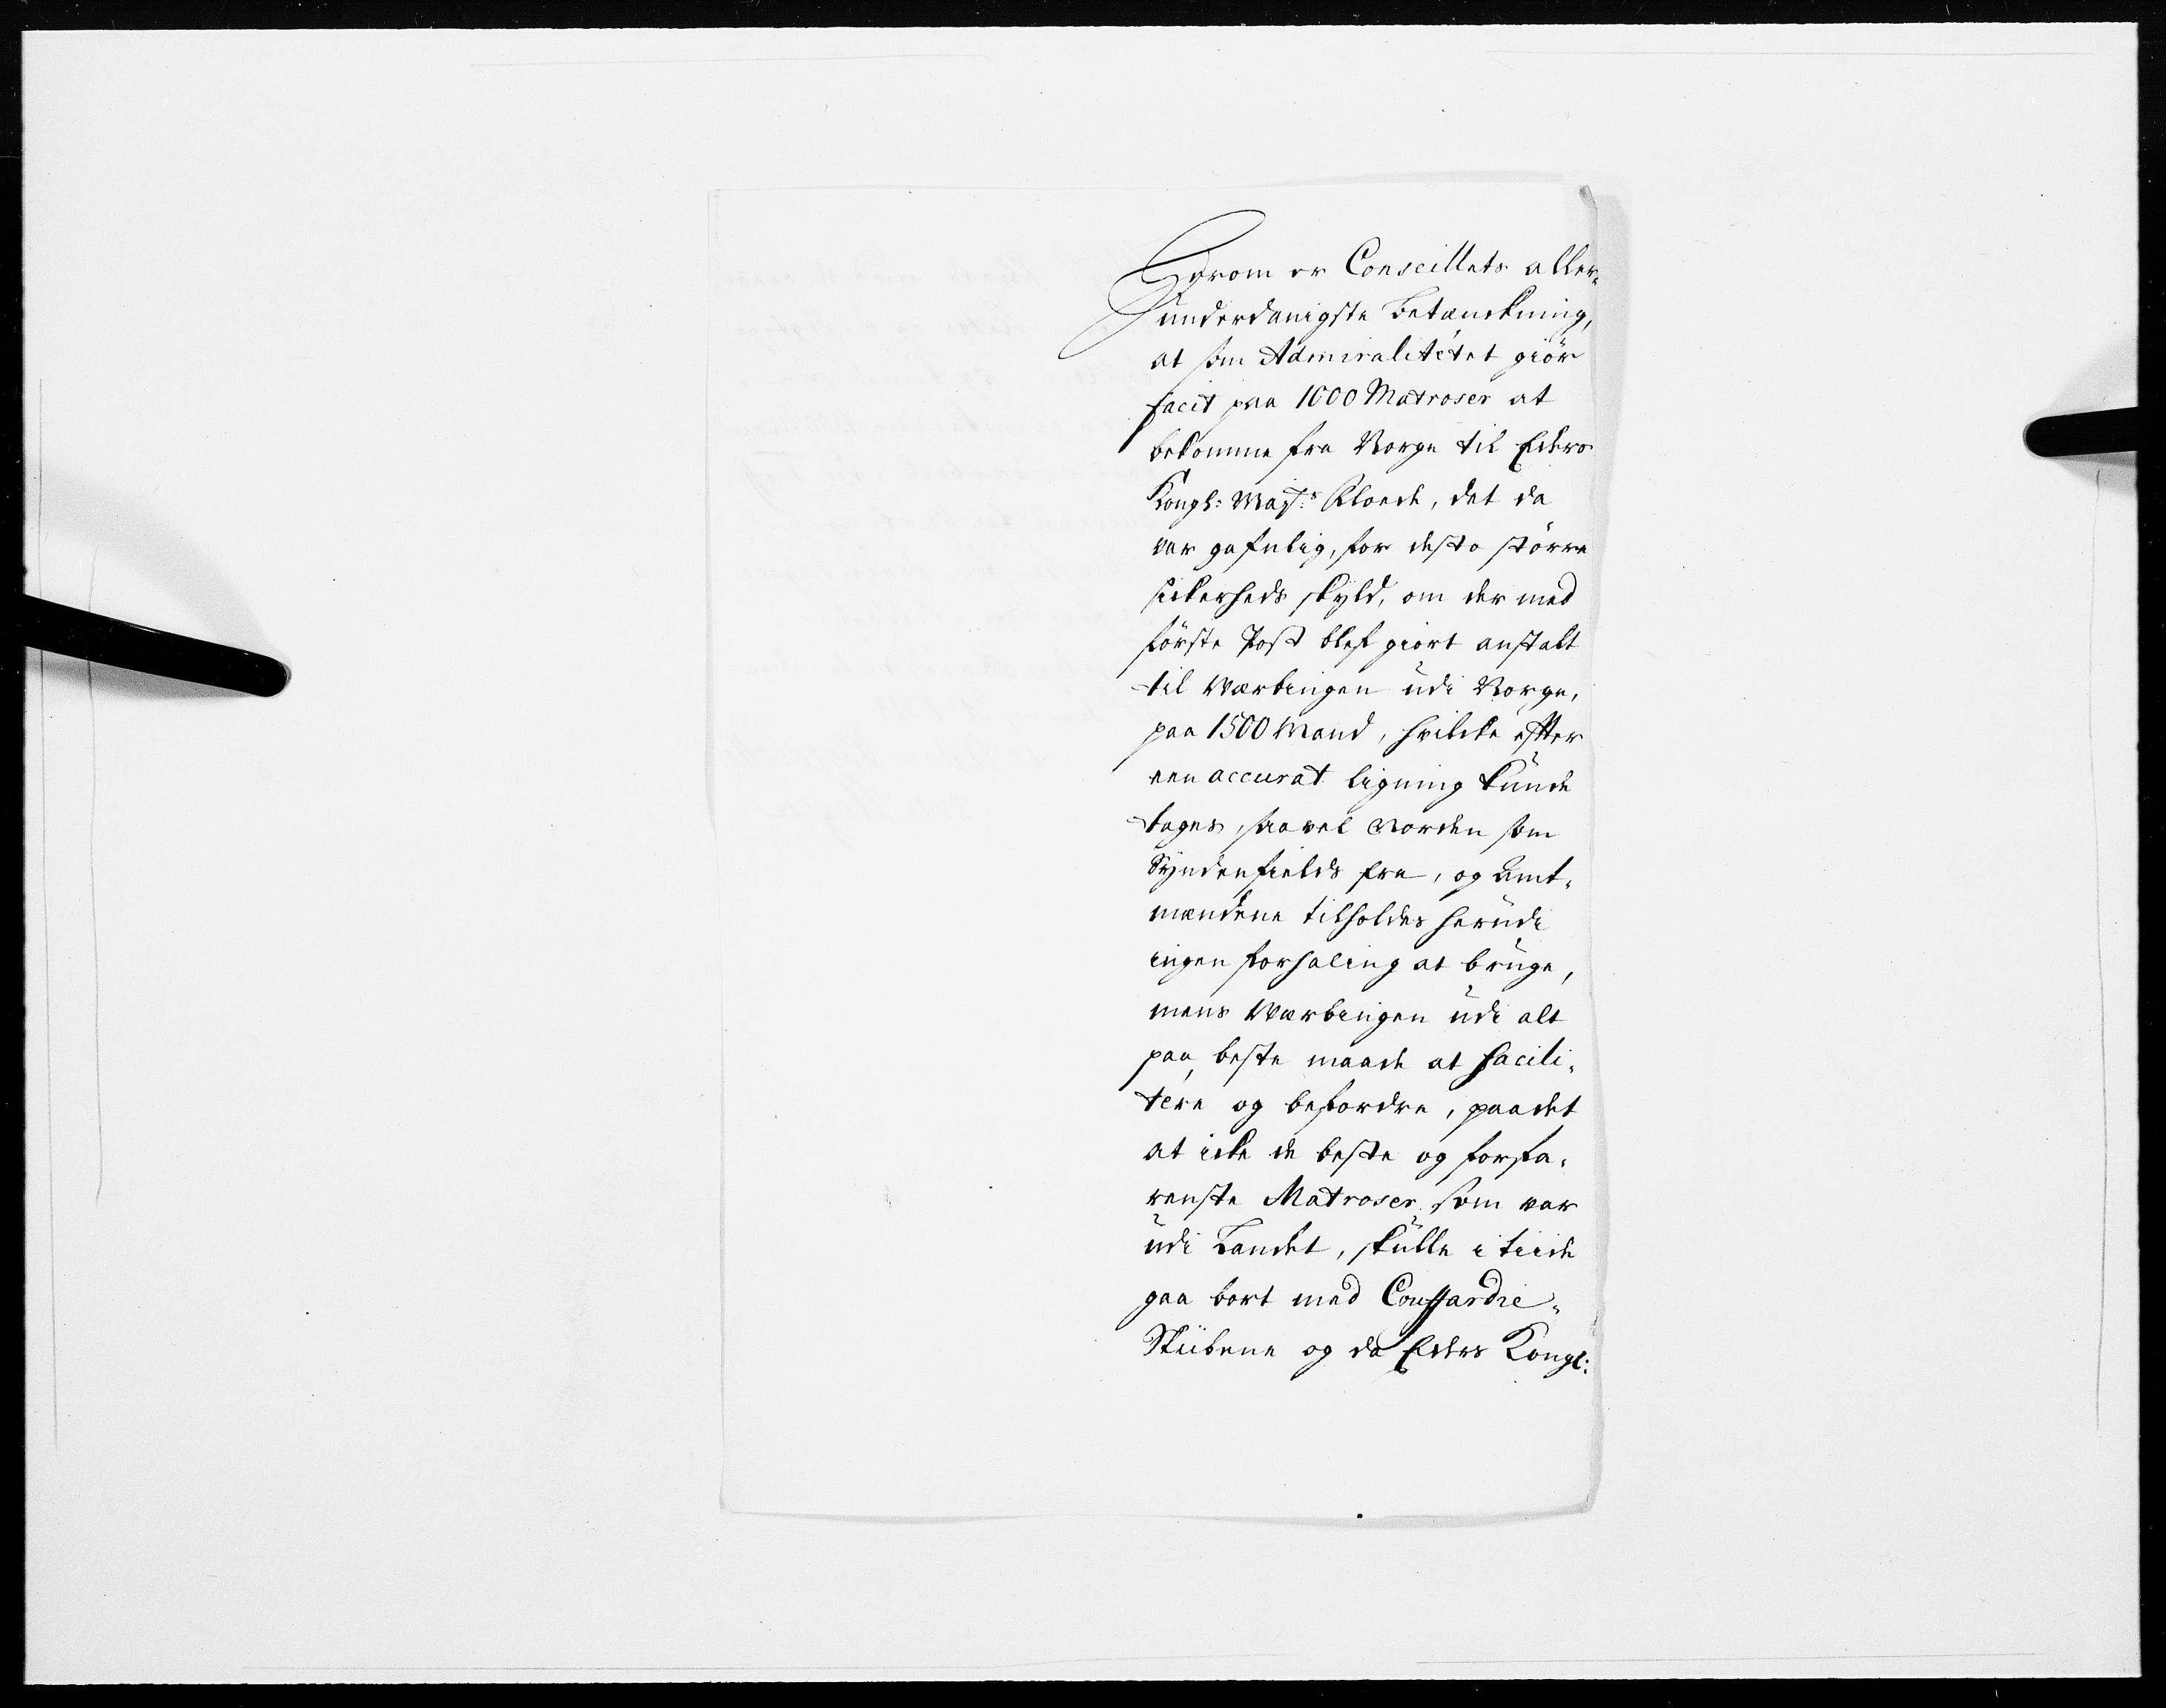 Herom er Conseillets aller-
underdanigste betænckning,
at som Admiralitétet giör
facit paa 1000 Matroser at
bekomme fra Norge til Eders
Kongl: Mayts: Floede, det da
var gafnlig, for desto större
sickerheds skyld, om der med
förste Post blef giort anstalt
til Werbingen udi Norge,
paa 1500 Mand, hvilcke efter
een accurat ligning kunde
tages, saavel Norden som
Syndenfields fra, og Amt-
mændene tilholdes herudi
ingen forhaling at bruge,
mens Werbingen udi alt
paa beste maade at facili-
tére og befordre, paa det
at icke de beste og forfa-
renste Matroser som var
udi Landet, skulle i tiide
gaa bort med Couffardie-
Skibene og da Eders Kongl: